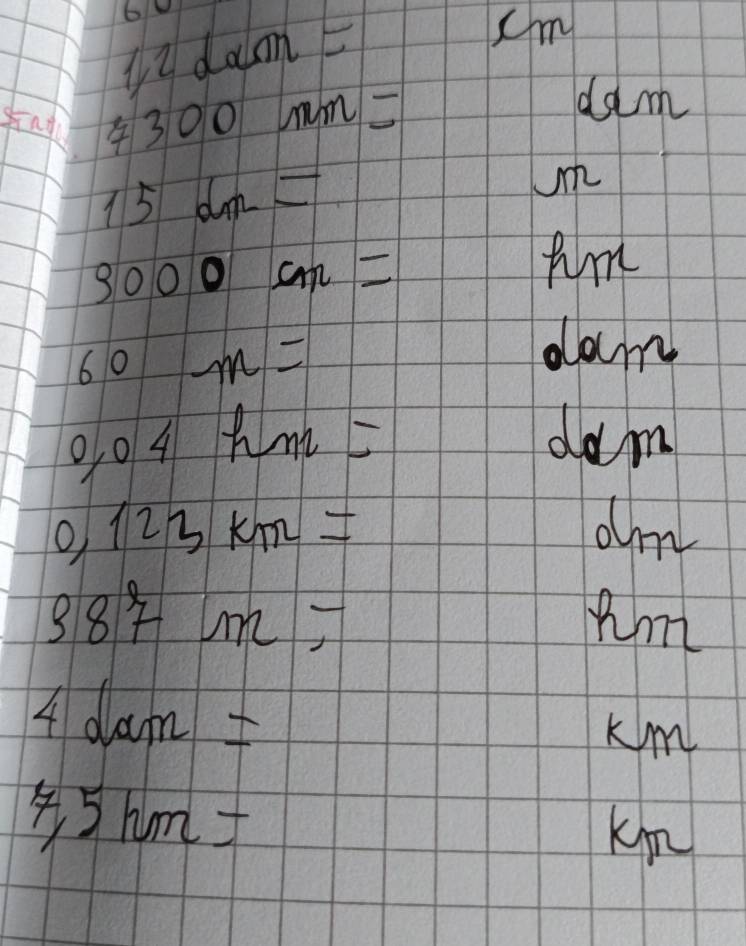 60
1,2 dam = cm
7300 mm = dam
15 dm = m
9000 cm = hm
60 m = dam
0,04 hm = dam
0,123 km = dm
987 m = hm
4 dam = km
7,5 hm = km